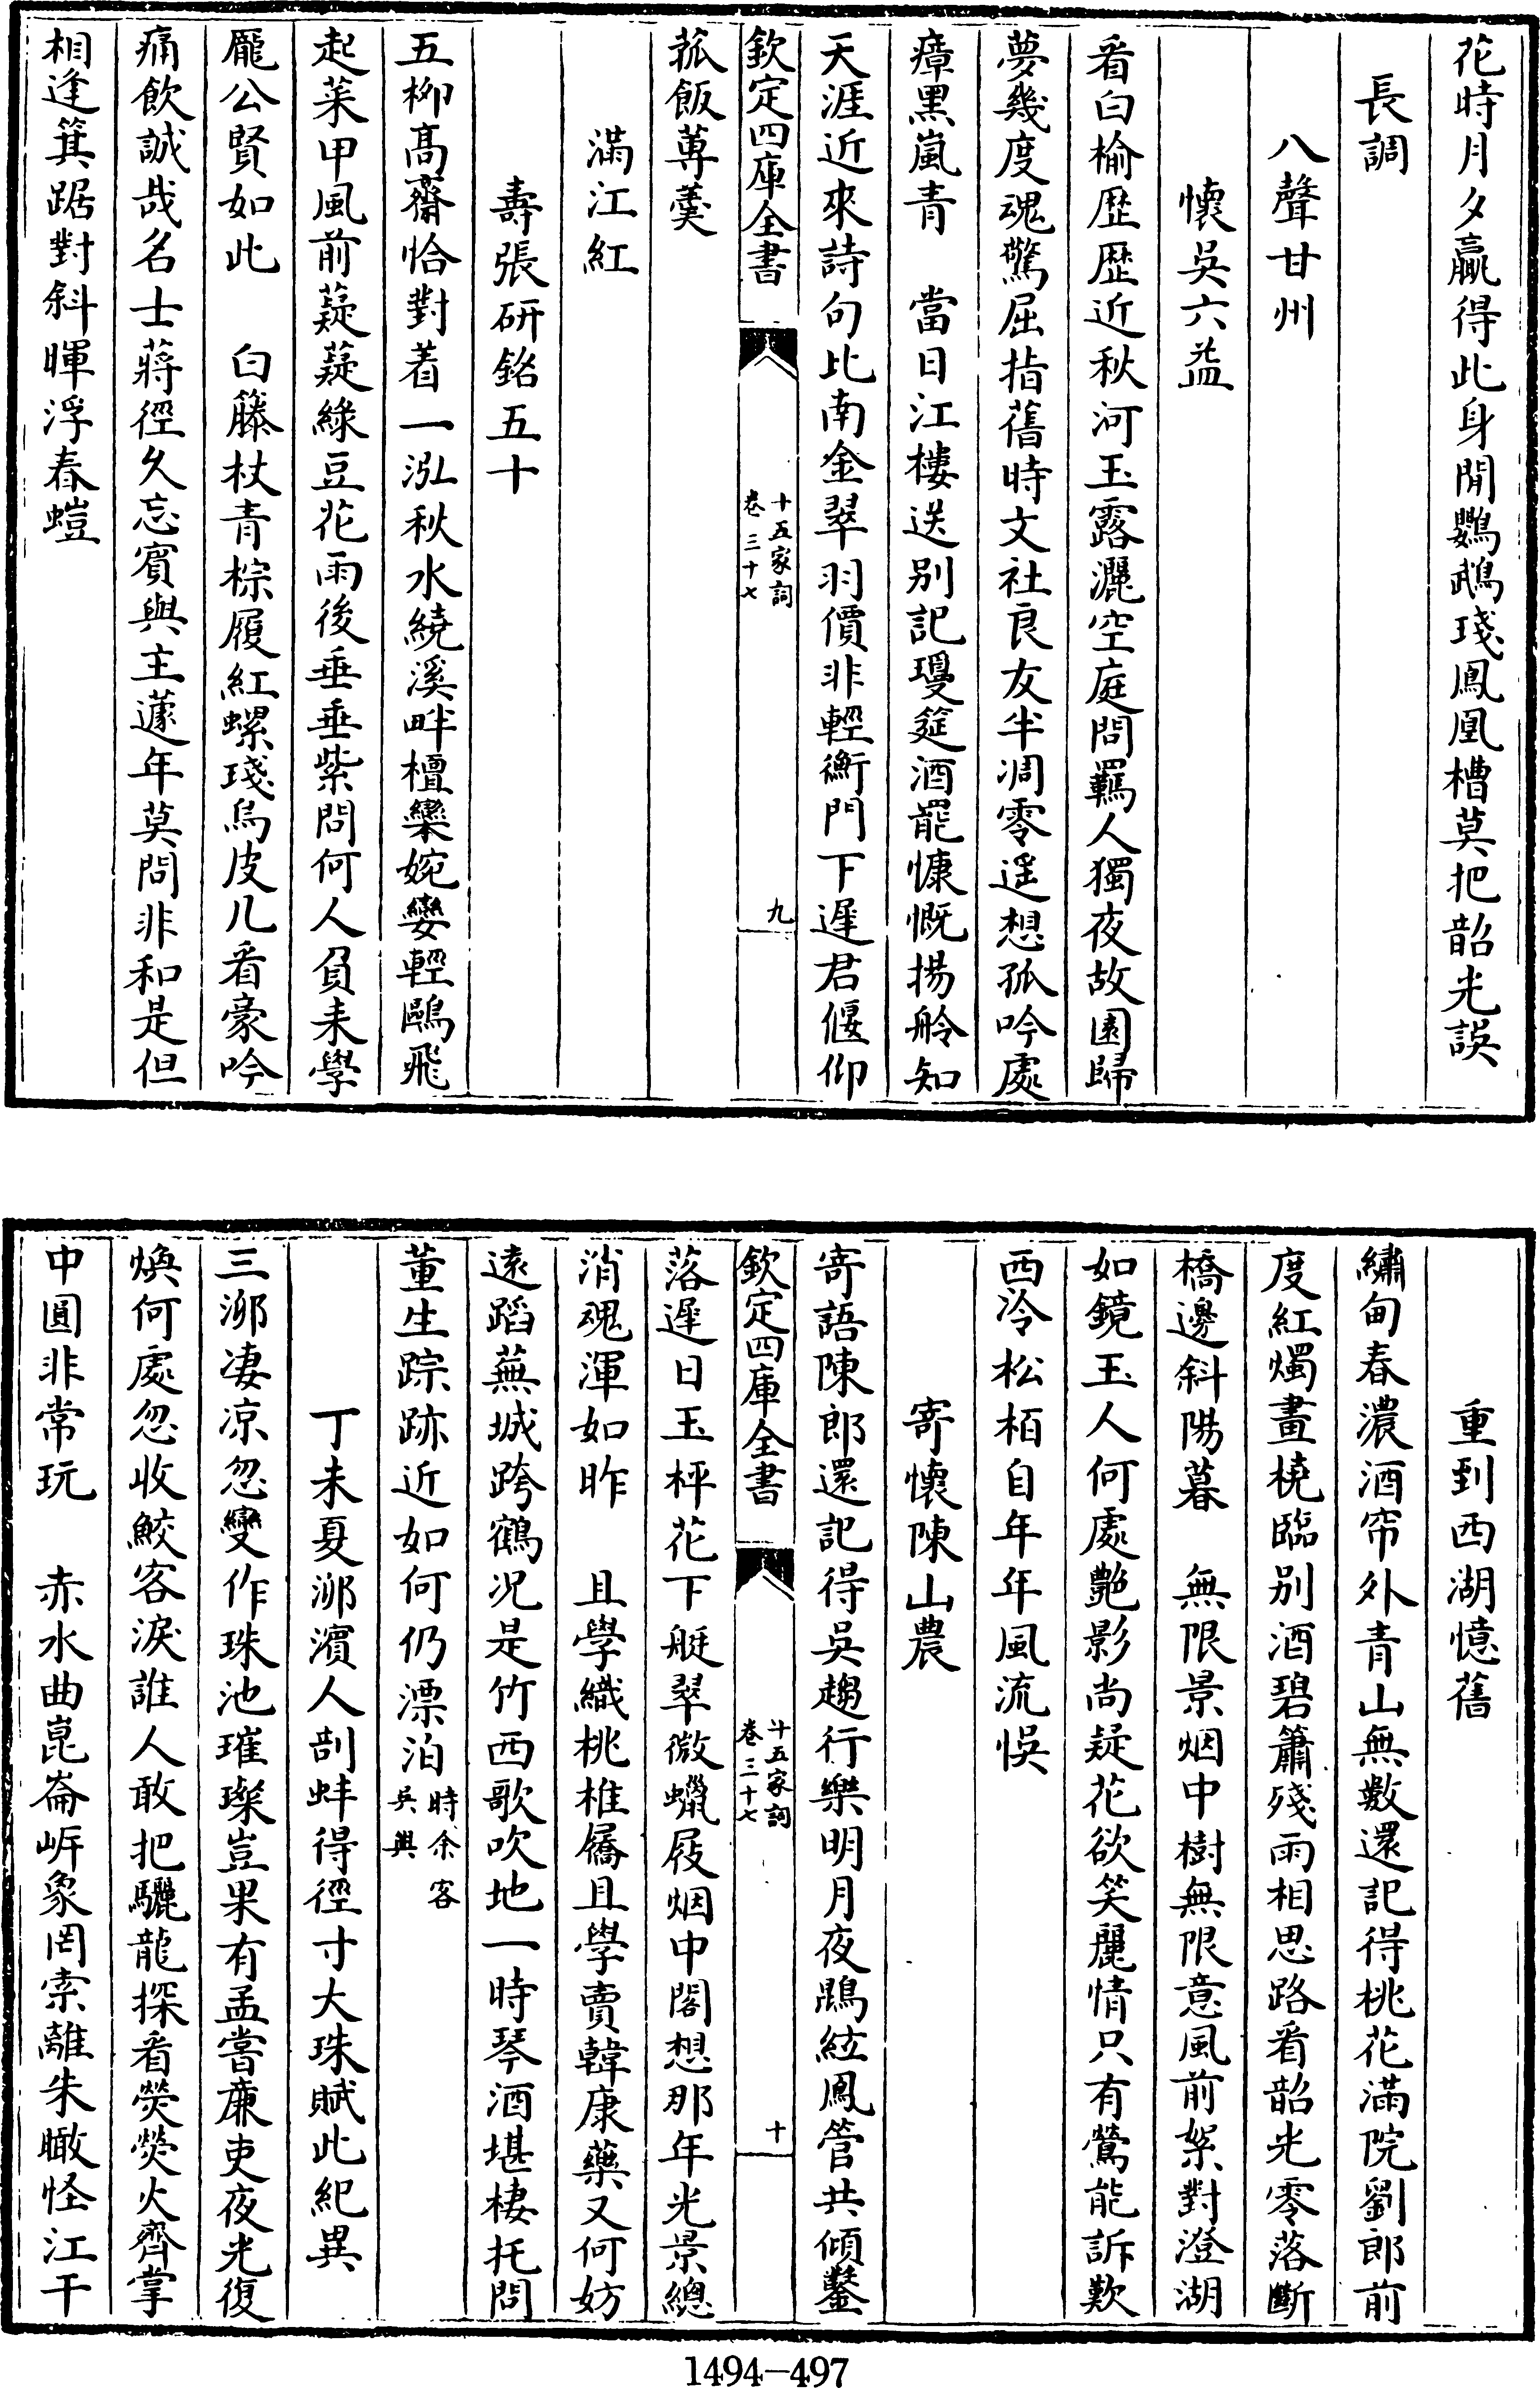 花時月夕贏得此身閒鸚鵡琖鳳凰槽莫把韶光誤
長調
八聲甘州
懷吳六益
看白榆歷歷近秋河玉露灑空庭問羈人獨夜故園歸
夢幾度魂驚屈指舊時文社良友半凋零遥想孤吟處
瘴黑嵐青　當日江樓送别記璎筵酒罷慷慨揚舲知
天涯近來詩句比南金翠羽價非輕衡門下遲君偃仰
欽定四庫全書
十五家詞
卷三十七
九
菰飯蓴羹
滿江紅
壽張研銘五十
五柳高齋恰對着一泓秋水繞溪畔檀欒婉孌輕鷗飛
起菜甲風前薿薿綠豆花雨後垂垂紫問何人負耒學
龎公賢如此　白籐杖青棕履紅螺琖烏皮几看豪吟
痛飲誠哉名士蔣徑久忘賓與主蘧年莫問非和是但
相逢箕踞對斜暉浮春螘
重到西湖憶舊
繡甸春濃酒帘外青山無數還記得桃花滿院劉郎前
度紅燭畫橈臨别酒碧簫殘雨相思路看韶光零落斷
橋邊斜陽暮　無限景烟中樹無限意風前絮對澄湖
如鏡玉人何處艷影尚疑花欲笑麗情只有鶯能訴歎
西泠松栢自年年風流悞
寄懷陳山農
寄語陳郎還記得吳趨行樂明月夜鵾絃鳳管共傾鑿
欽定四庫全書
十五家詞
卷三十七
十
落遲日玉枰花下艇翠微蠟屐烟中閣想那年光景總
消魂渾如昨　且學織桃椎屩且學賣韓康藥又何妨
遠蹈蕪城跨鶴况是竹西歌吹地一時琴酒堪棲托問
董生踪跡近如何仍漂泊時余客吳興
丁未夏泖濱人剖蚌得徑寸大珠賦此紀異
三泖凄凉忽變作珠池璀璨豈果有孟嘗亷吏夜光復
煥何處忽收鮫客淚誰人敢把驪龍探看熒熒火齊掌
中圓非常玩　赤水曲崑崙㟁象罔索離朱瞰怪江干
1494-497